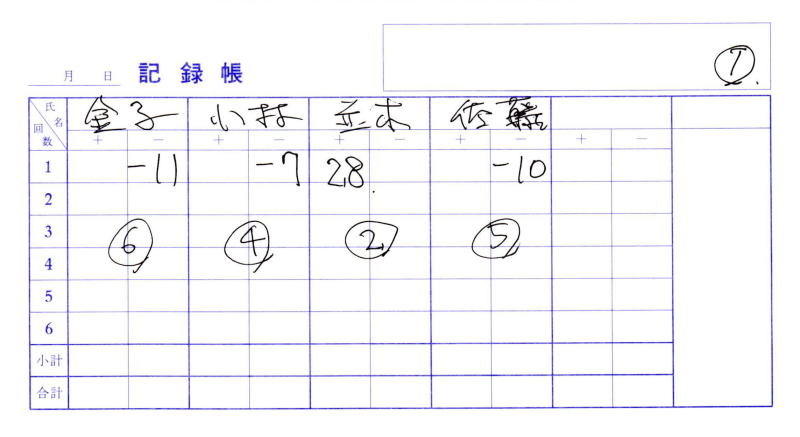 ①.
月 日 記録帳
氏名 回数 金子 小林 並木 佐藤
+ − + − + − + − + −
1 -11 -7 28. -10
2
3 ⑥ ④ ② ⑤
4
5
6
小計
合計